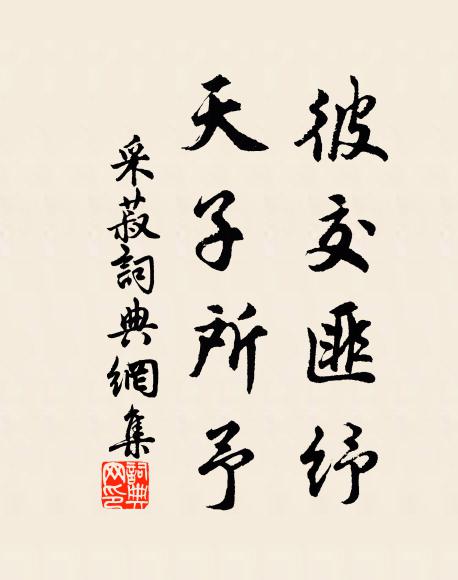 彼交匪紓
天子所予
采菽詞典網集
詞典
网印